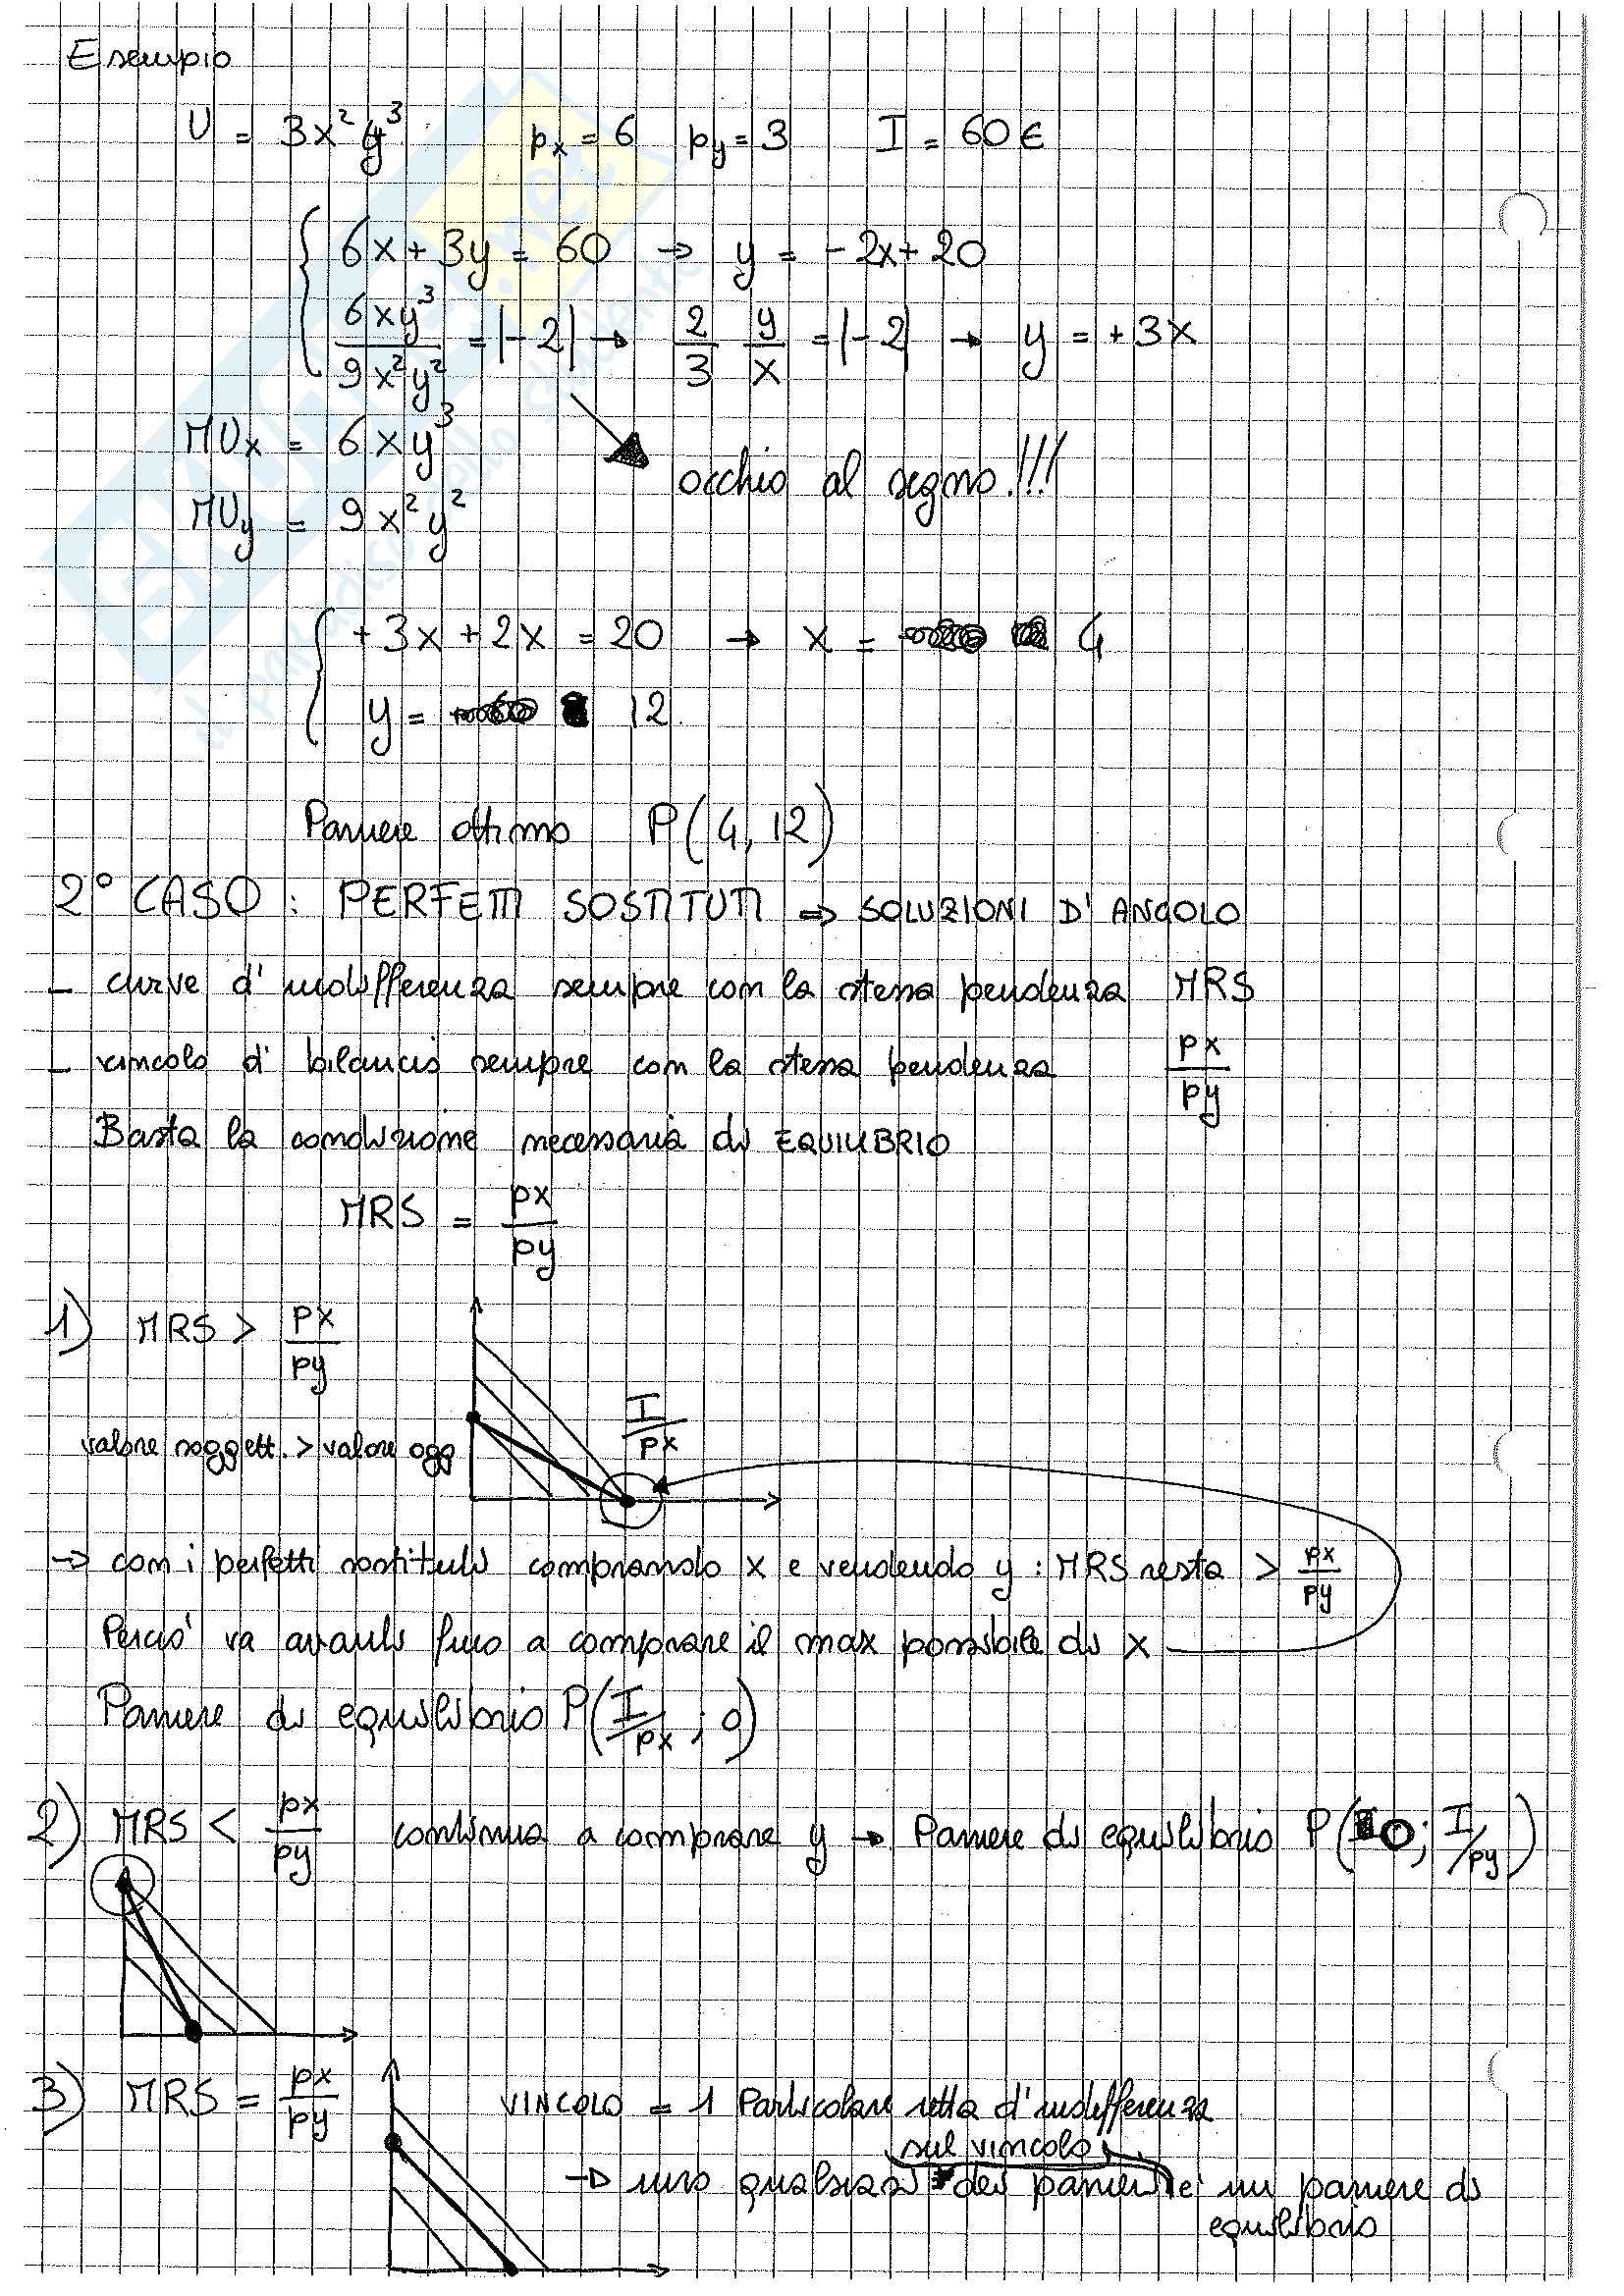 Esempio
U = 3x²y³ px = 6 py = 3 I = 60 €
6x + 3y = 60 → y = -2x + 20
6xy³ / 9x²y² = |-2| → 2/3 y/x = |-2| → y = +3x
MUx = 6xy³
occhio al segno!!!
MUy = 9x²y²
+3x + 2x = 20 → x = 4
y = 12
Paniere ottimo P(4, 12)
2° CASO: PERFETTI SOSTITUTI ⇒ SOLUZIONI D'ANGOLO
- curve d'indifferenza sempre con la stessa pendenza MRS
- vincolo di bilancio sempre con la stessa pendenza px/py
Basta la condizione necessaria di EQUILIBRIO
MRS = px/py
1) MRS > px/py
I/px
valore soggett. > valore ogg
→ con i perfetti sostituti comprando x e vendendo y : MRS resta > px/py
Perciò va avanti fino a comprare il max possibile di x
Paniere di equilibrio P(I/px ; 0)
2) MRS < px/py continua a comprare y → Paniere di equilibrio P(0; I/py)
3) MRS = px/py
VINCOLO = 1 Particolare retta d'indifferenza
sul vincolo
→ uno qualsiasi dei panieri è un paniere di
equilibrio